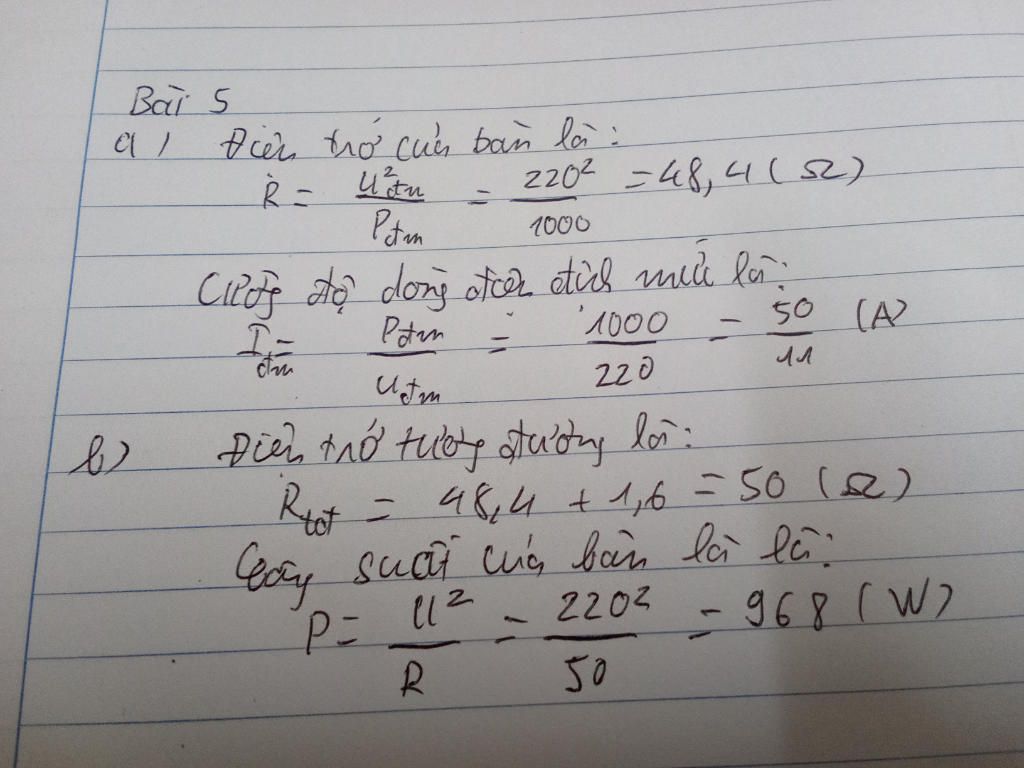 Bài 5
a) Điện trở của bàn là:
R = U²đm / Pđm = 220² / 1000 = 48,4 (Ω)
Cường độ dòng điện định mức là:
Iđm = Pđm / Uđm = 1000 / 220 = 50 / 11 (A)
b) Điện trở tương đương là:
Rtđ = 48,4 + 1,6 = 50 (Ω)
Công suất của bàn là là:
P = U² / R = 220² / 50 = 968 (W)